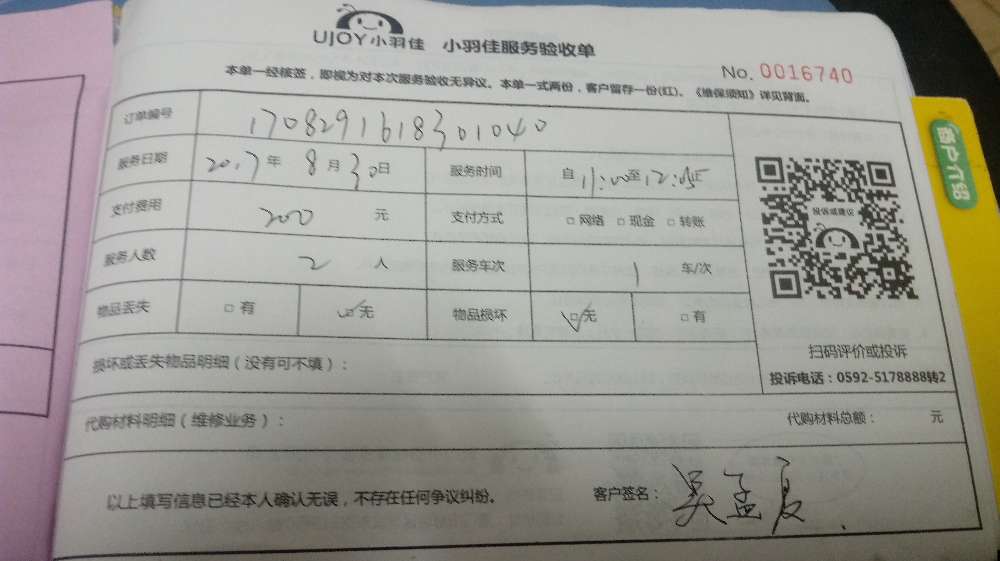 UJOY小羽佳 小羽佳服务验收单
No. 0016740
本单一经核签，即视为对本次服务验收无异议。本单一式两份，客户留存一份(红)。《维保须知》详见背面。
订单编号 1708291618301040
服务日期 2017年 8月30日 服务时间 自11:00至12:05止
支付费用 200 元 支付方式 □网络 □现金 □转账
服务人数 2 人 服务车次 1 车/次
物品丢失 □有 ☑无 物品损坏 ☑无 □有
投诉或建议
扫码评价或投诉
投诉电话：0592-5178888转2
损坏或丢失物品明细（没有可不填）：
代购材料明细（维修业务）： 代购材料总额： 元
以上填写信息已经本人确认无误，不存在任何争议纠纷。 客户签名：吴孟夏
客户介绍